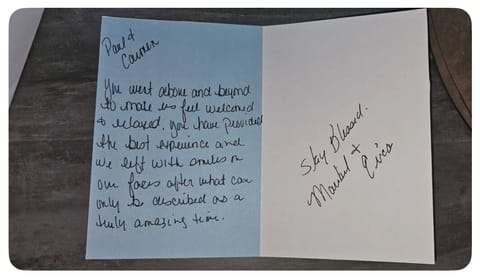 Paul &
Carmen
You went above and beyond
to make us feel welcomed
& relaxed. You have provided
the best experience and
we left with smiles on
our faces after what can
only be described as a
truly amazing time.
Stay Blessed.
Maribel &
Erica